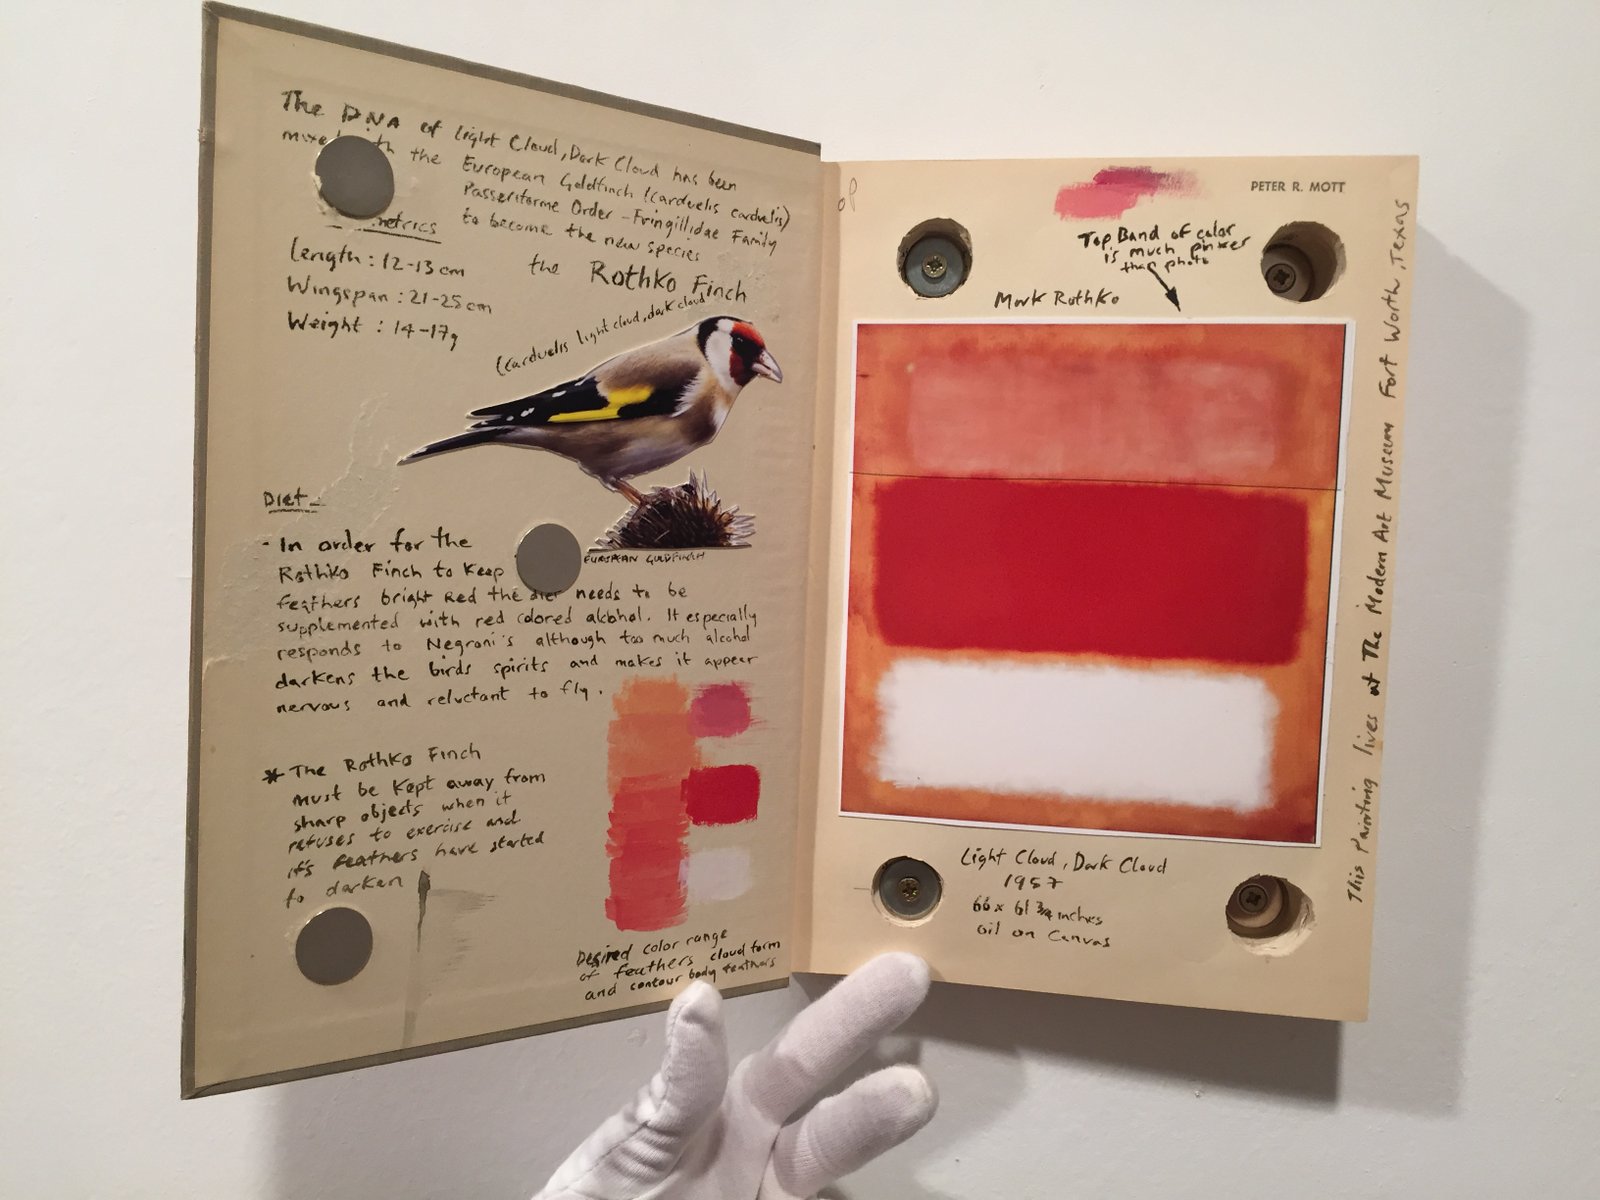 The DNA of Light Cloud, Dark Cloud has been
mixed with the European Goldfinch (carduelis carduelis)
Passeriforme Order - Fringillidae Family
to become the new species
the Rothko Finch
(carduelis light cloud, dark cloud
metrics
Length : 12-13 cm
Wingspan : 21-25 cm
Weight : 14-17g
EUROPEAN GOLDFINCH
Diet -
- In order for the
Rothko Finch to keep
feathers bright red the diet needs to be
supplemented with red colored alcohol. It especially
responds to Negroni's although too much alcohol
darkens the birds spirits and makes it appear
nervous and reluctant to fly.
* The Rothko Finch
must be kept away from
sharp objects when it
refuses to exercise and
it's feathers have started
to darken
Desired color range
of feathers cloud form
and contour body feathers
PETER R. MOTT
Top Band of color
is much pinker
than photo
Mark Rothko
Light Cloud, Dark Cloud
1957
66 x 61 3/4 inches
oil on canvas
This painting lives at The Modern Art Museum Fort Worth, Texas